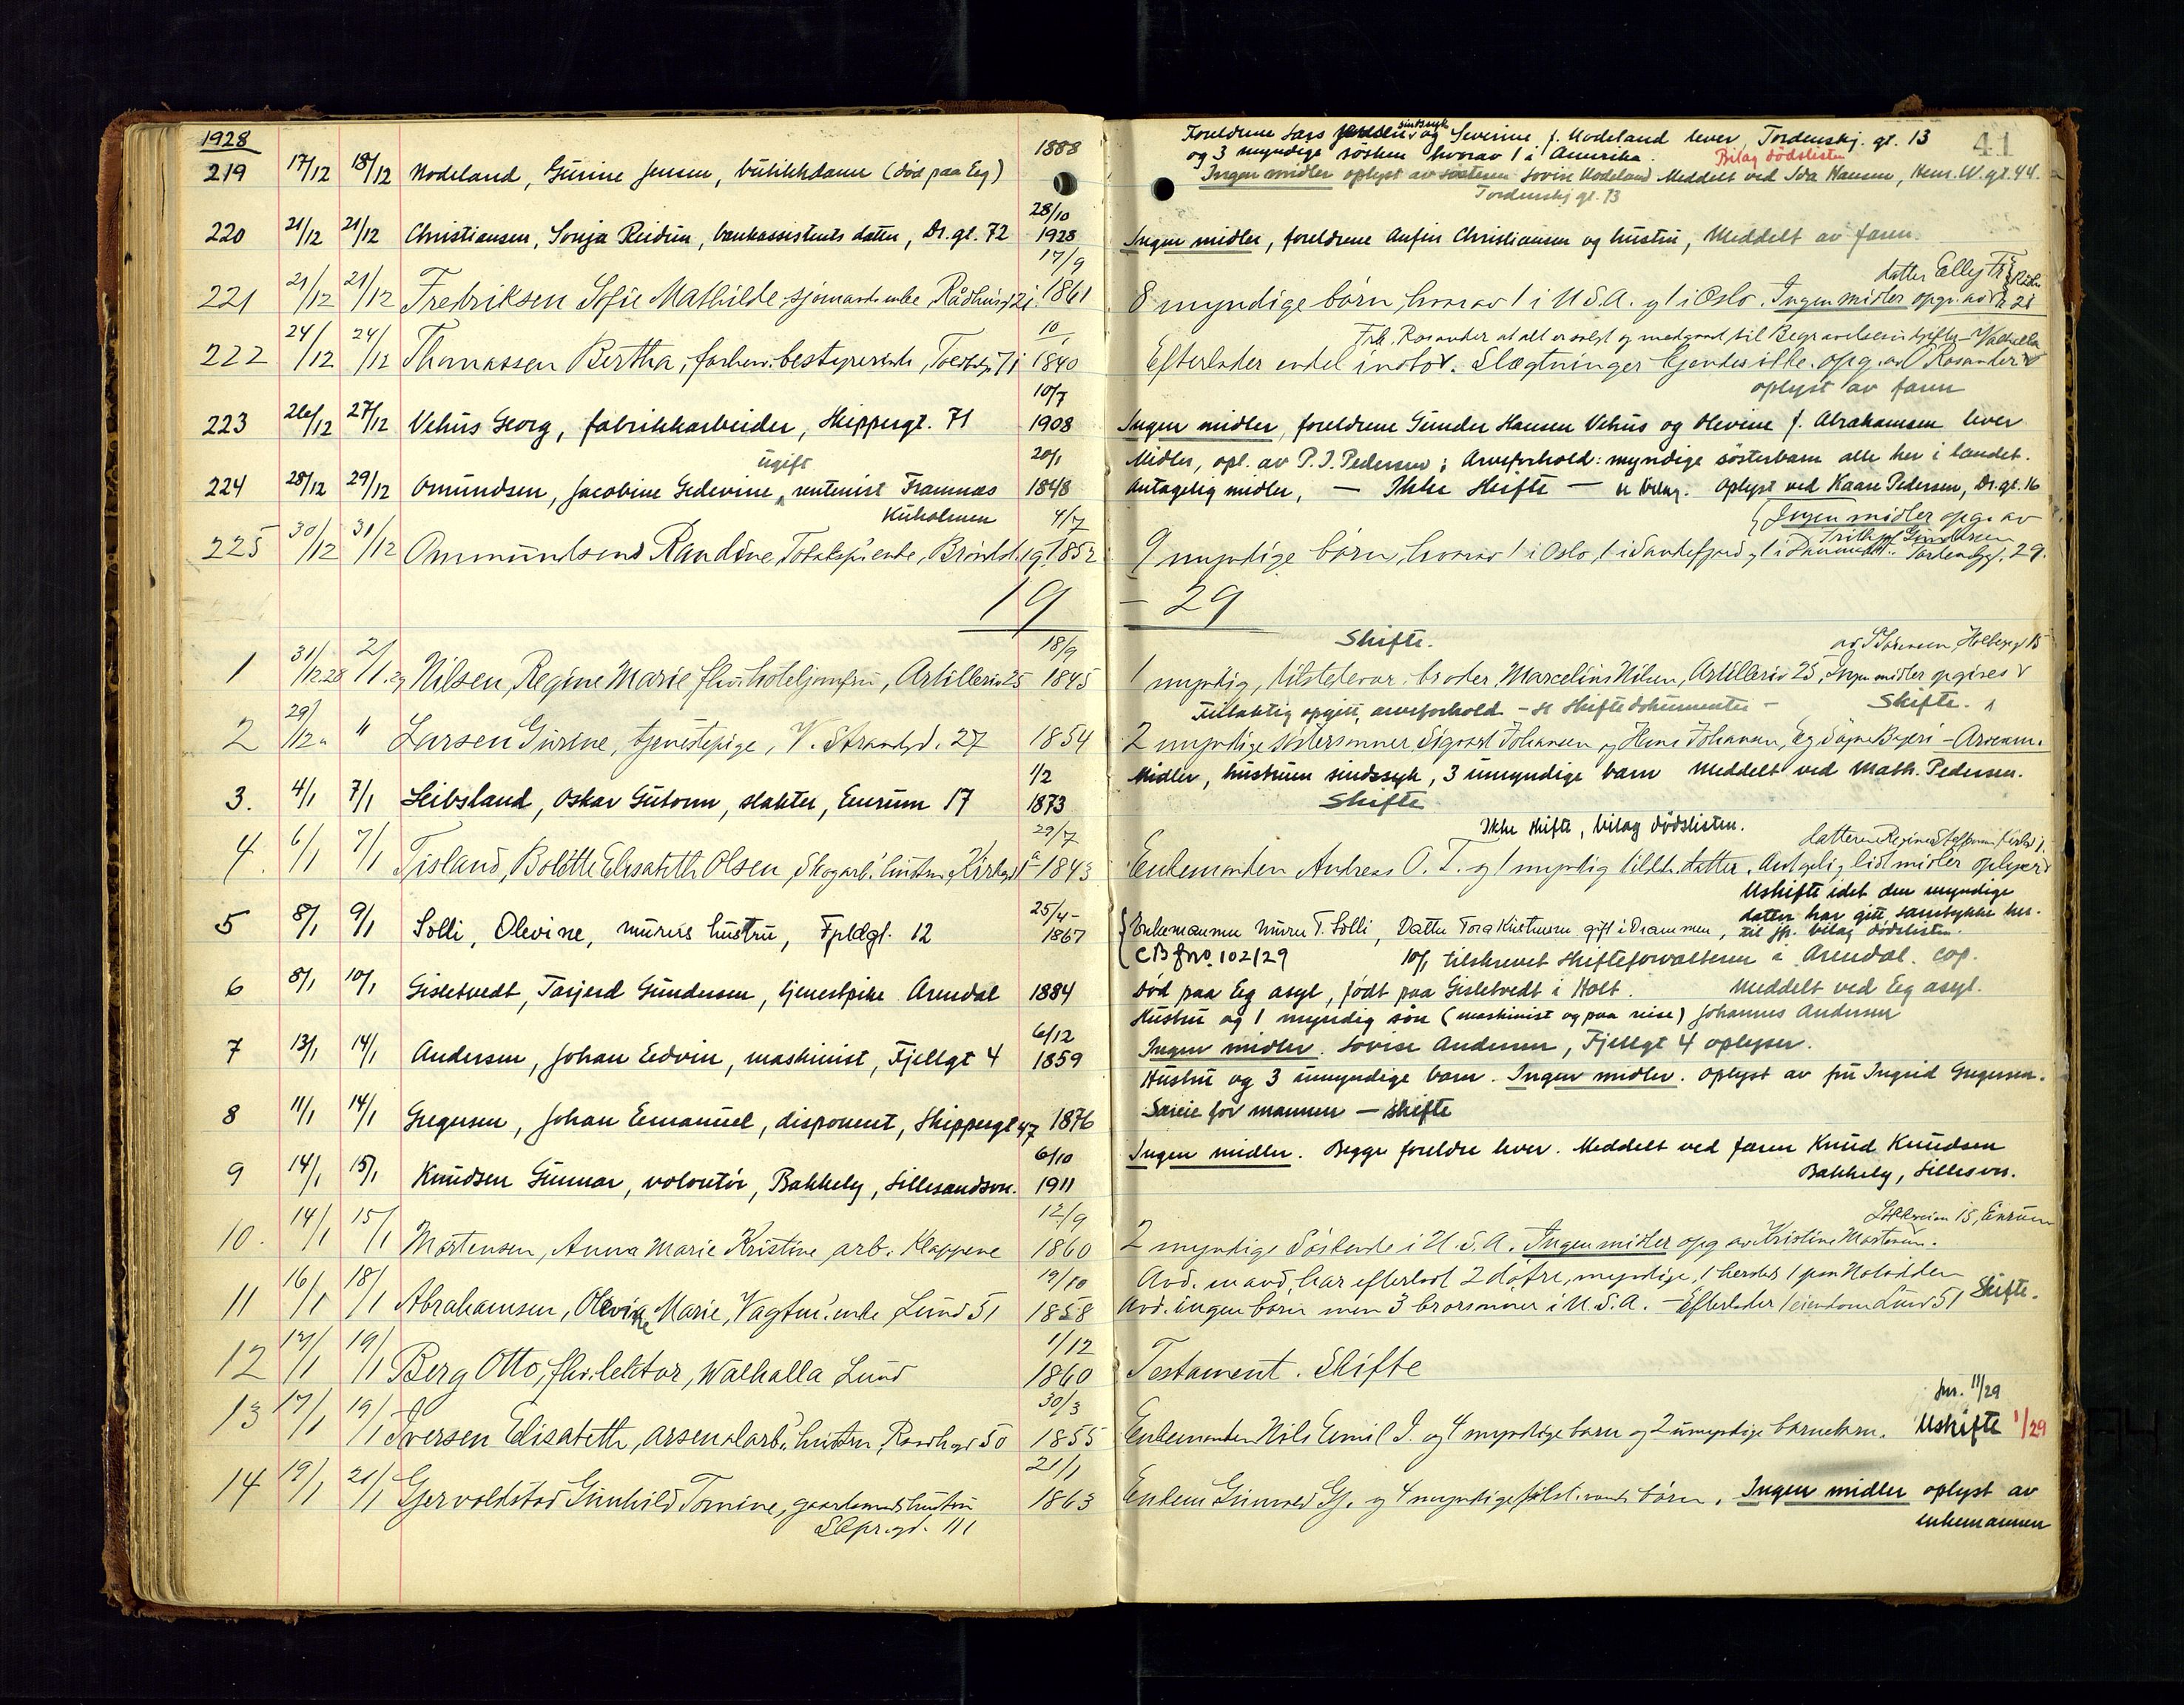 1928
219 17/12 18/12 Nodeland, Gurine Jensen, butikkdame (død paa Eg) 1888
Foreldrene Lars sindssyk og Severine f. Nodeland lever, Tordenskj. gt. 13 41
og 3 myndige søsken hvorav 1 i Amerika. Bilag dødslisten
Ingen midler oplyst av søsteren Lovise Nodeland Meddelt ved Ida Hansen, Henr. W. gt. 44.
Tordenskj gt. 13
220 21/12 21/12 Christiansen, Sonja Reidun, bankassistents datter, Dr. gt. 72 28/10 1928
Ingen midler, foreldrene Anfin Christiansen og hustru, Meddelt av faren
221 21/12 21/12 Fredriksen Sofie Mathilde, sjømands enke Rådhusgt 21 17/9 1861
datter Elly Fr.
8 myndige børn, hvorav 1 i U.S.A. og 1 i Oslo. Ingen midler opgr. av 21
222 24/12 24/12 Thomassen Bertha, forhenv. bestyrerinde, Toldbgt 71 10/ 1840
Frk. Rosander at alt er solgt og medgaat til Begravelsesutgifter – Valhalla
Efterlader endel indbo. Slægtninger kjendes ikke. opg. av Rosander
oplyst av faren
223 26/12 27/12 Vehus Georg, fabrikkarbeider, Skippergt. 71 10/7 1908
Ingen midler, foreldrene Gunder Hansen Vehus og Olevine f. Abrahamsen lever
224 28/12 29/12 Omundsen, Jacobine Gedevine, ugift rentenist Framnæs 20/1 1848
Kuholmen
Midler, opl. av P. J. Pedersen; Arveforhold: myndige søsterbarn alle her i landet.
Antagelig midler, – Ikke Skifte – se bilag. Oplyst ved Kaare Pedersen, Dr. gt. 16
225 30/12 31/12 Ommundsen Randine, enke, 4/7 1852
Ingen midler opg. av
9 myndige børn, hvorav 1 i Oslo, 1 i Sandefjord og 1 i Danmark. Tordenskjgt. 29.
19 – 29
1 31/12.28 2/1.29 Nilsen, Regine Marie fhv. hoteljomfru, Artilleriv 25 18/9 1845
Skifte. av Sørensen, Holbergt 15
1 myndig, tilstedevær. broder, Marcelius Nilsen, Artilleriv 25, Ingen midler opgives
2 29/12 " Larsen Gurine, tjenestepige, V. Strandgd. 27 1854
Feilaktig opgitt arveforhold – se skiftedokumenter – Skifte.
2 myndige søstersønner Sigvart Johansen og Hans Johansen,
3. 4/1 7/1 Leibsland, Oskar Gutorm, slakter, Enrum 17 1/2 1873
Midler, hustruen sindssyk, 3 umyndige barn Meddelt ved Math. Pedersen.
Skifte
4. 6/1 7/1 Tisland, Bolette Elisabeth Olsen, Skogarb. hustru, Kirkegt 1a 29/7 1843
Ikke skifte, bilag dødslisten.
Enkemanden Andreas O. T. og 1 myndig datter. Antagelig lidt midler oplyser
5 8/1 9/1 Solli, Olevine, murers hustru, Fpldgt. 12 25/4 – 1867
Uskifte idet den myndige
datter har gitt samtykke her-
til jfr. bilag dødslisten.
Enkemannen murer T. Solli, Datter Tora Kristensen gift i Drammen,
CB fno. 102/29
6 8/1 10/1 Gisletvedt, Tarjerd Gundersen, tjenestpike Arendal 1884
10/1 tilskrevet skifteforvalteren i Arendal. cop.
død paa Eg asyl, født paa Gisletvedt i Holt. Meddelt ved Eg asyl.
7 13/1 14/1 Andersen, Johan Edvin, maskinist, Fjellgt 4 6/12 1859
Hustru og 1 myndig søn (maskinist og paa reise) Johannes Andersen
Ingen midler. Lovise Andersen, Fjellgt 4 oplyser.
8 11/1 14/1 Gregersen, Johan Emanuel, disponent, Skippergt 47 1876
Hustru og 3 umyndige barn. Ingen midler. Oplyst av fru Ingrid Gregersen.
Særeie for mannen – skifte
9 14/1 15/1 Knudsen Gunnar, volontør, Bakkely, Lillesandsvn. 6/10 1911
Ingen midler. Begge foreldre lever. Meddelt ved faren Knud Knudsen
Bakkely, Lillesvn.
10. 14/1 15/1 Mortensen, Anna Marie Kristine, arb. Klappene 12/9 1860
15, Enrum
2 myndige Søskende i U.S.A. Ingen midler opg av Kristine Mortensen.
11 16/1 18/1 Abrahamsen, Olevine Marie, Vagtm. enke Lund 51 19/10 1858
Avd. mand har efterladt 2 døtre, myndige, 1 her 1 paa Notodden
Avd. ingen børn men 3 brorsønner i U.S.A. – Efterlader 1 eiendom Lund 51 Skifte.
12 17/1 19/1 Berg Otto, fhv. lektor, Walhalla Lund 1/12 1860
Testament. Skifte
13 17/1 19/1 Iversen Elisabeth, arsenalarb. hustru, Raadhusgt 50 30/3 1855
Jnr. 11/29
Enkemanden Nils Emil I. og 4 myndige barn og 2 umyndige barnebarn. Uskifte 1/29
14 19/1 21/1 Gjervoldstad Gunhild Tomine, gaardmands hustru 21/1 1863
Skpr.gt. 111
Enkem. Gunvald Gj. og 4 myndige børn. Ingen midler oplyst av
enkemannen